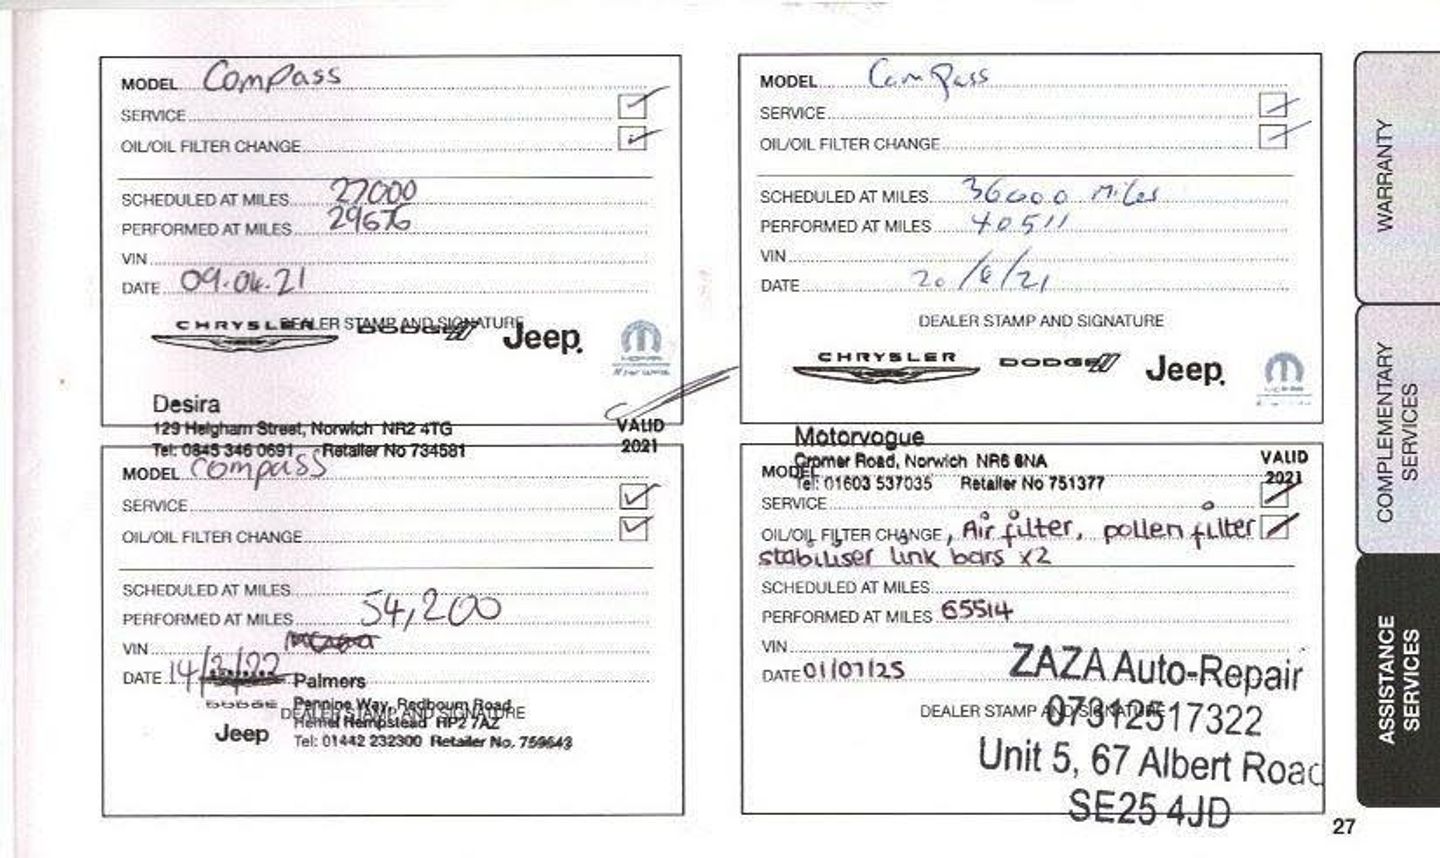 MODEL Compass
SERVICE
OIL/OIL FILTER CHANGE
SCHEDULED AT MILES 27000
PERFORMED AT MILES 29676
VIN
DATE 09.04.21
DEALER STAMP AND SIGNATURE
CHRYSLER DODGE Jeep
Desira
129 Heigham Street, Norwich NR2 4TG
Tel: 0845 346 0691 Retailer No 734581
VALID
2021
MODEL Compass
SERVICE
OIL/OIL FILTER CHANGE
SCHEDULED AT MILES 36000 Miles
PERFORMED AT MILES 40511
VIN
DATE 20/8/21
DEALER STAMP AND SIGNATURE
CHRYSLER DODGE Jeep
Motorvogue
Cromer Road, Norwich NR6 6NA
Tel: 01603 537035 Retailer No 751377
VALID
2021
MODEL Compass
SERVICE
OIL/OIL FILTER CHANGE
SCHEDULED AT MILES
PERFORMED AT MILES 54,200
VIN
DATE 14/2/22
DEALER STAMP AND SIGNATURE
DODGE
Jeep
Palmers
Pennine Way, Redbourn Road
Hemel Hempstead HP2 7AZ
Tel: 01442 232300 Retailer No. 759643
MODEL
SERVICE
OIL/OIL FILTER CHANGE, Air filter, pollen filter
stabiliser link bars x2
SCHEDULED AT MILES
PERFORMED AT MILES 65514
VIN
DATE 01/07/25
DEALER STAMP AND SIGNATURE
ZAZA Auto-Repair
07312517322
Unit 5, 67 Albert Road
SE25 4JD
WARRANTY
COMPLEMENTARY
SERVICES
ASSISTANCE
SERVICES
27